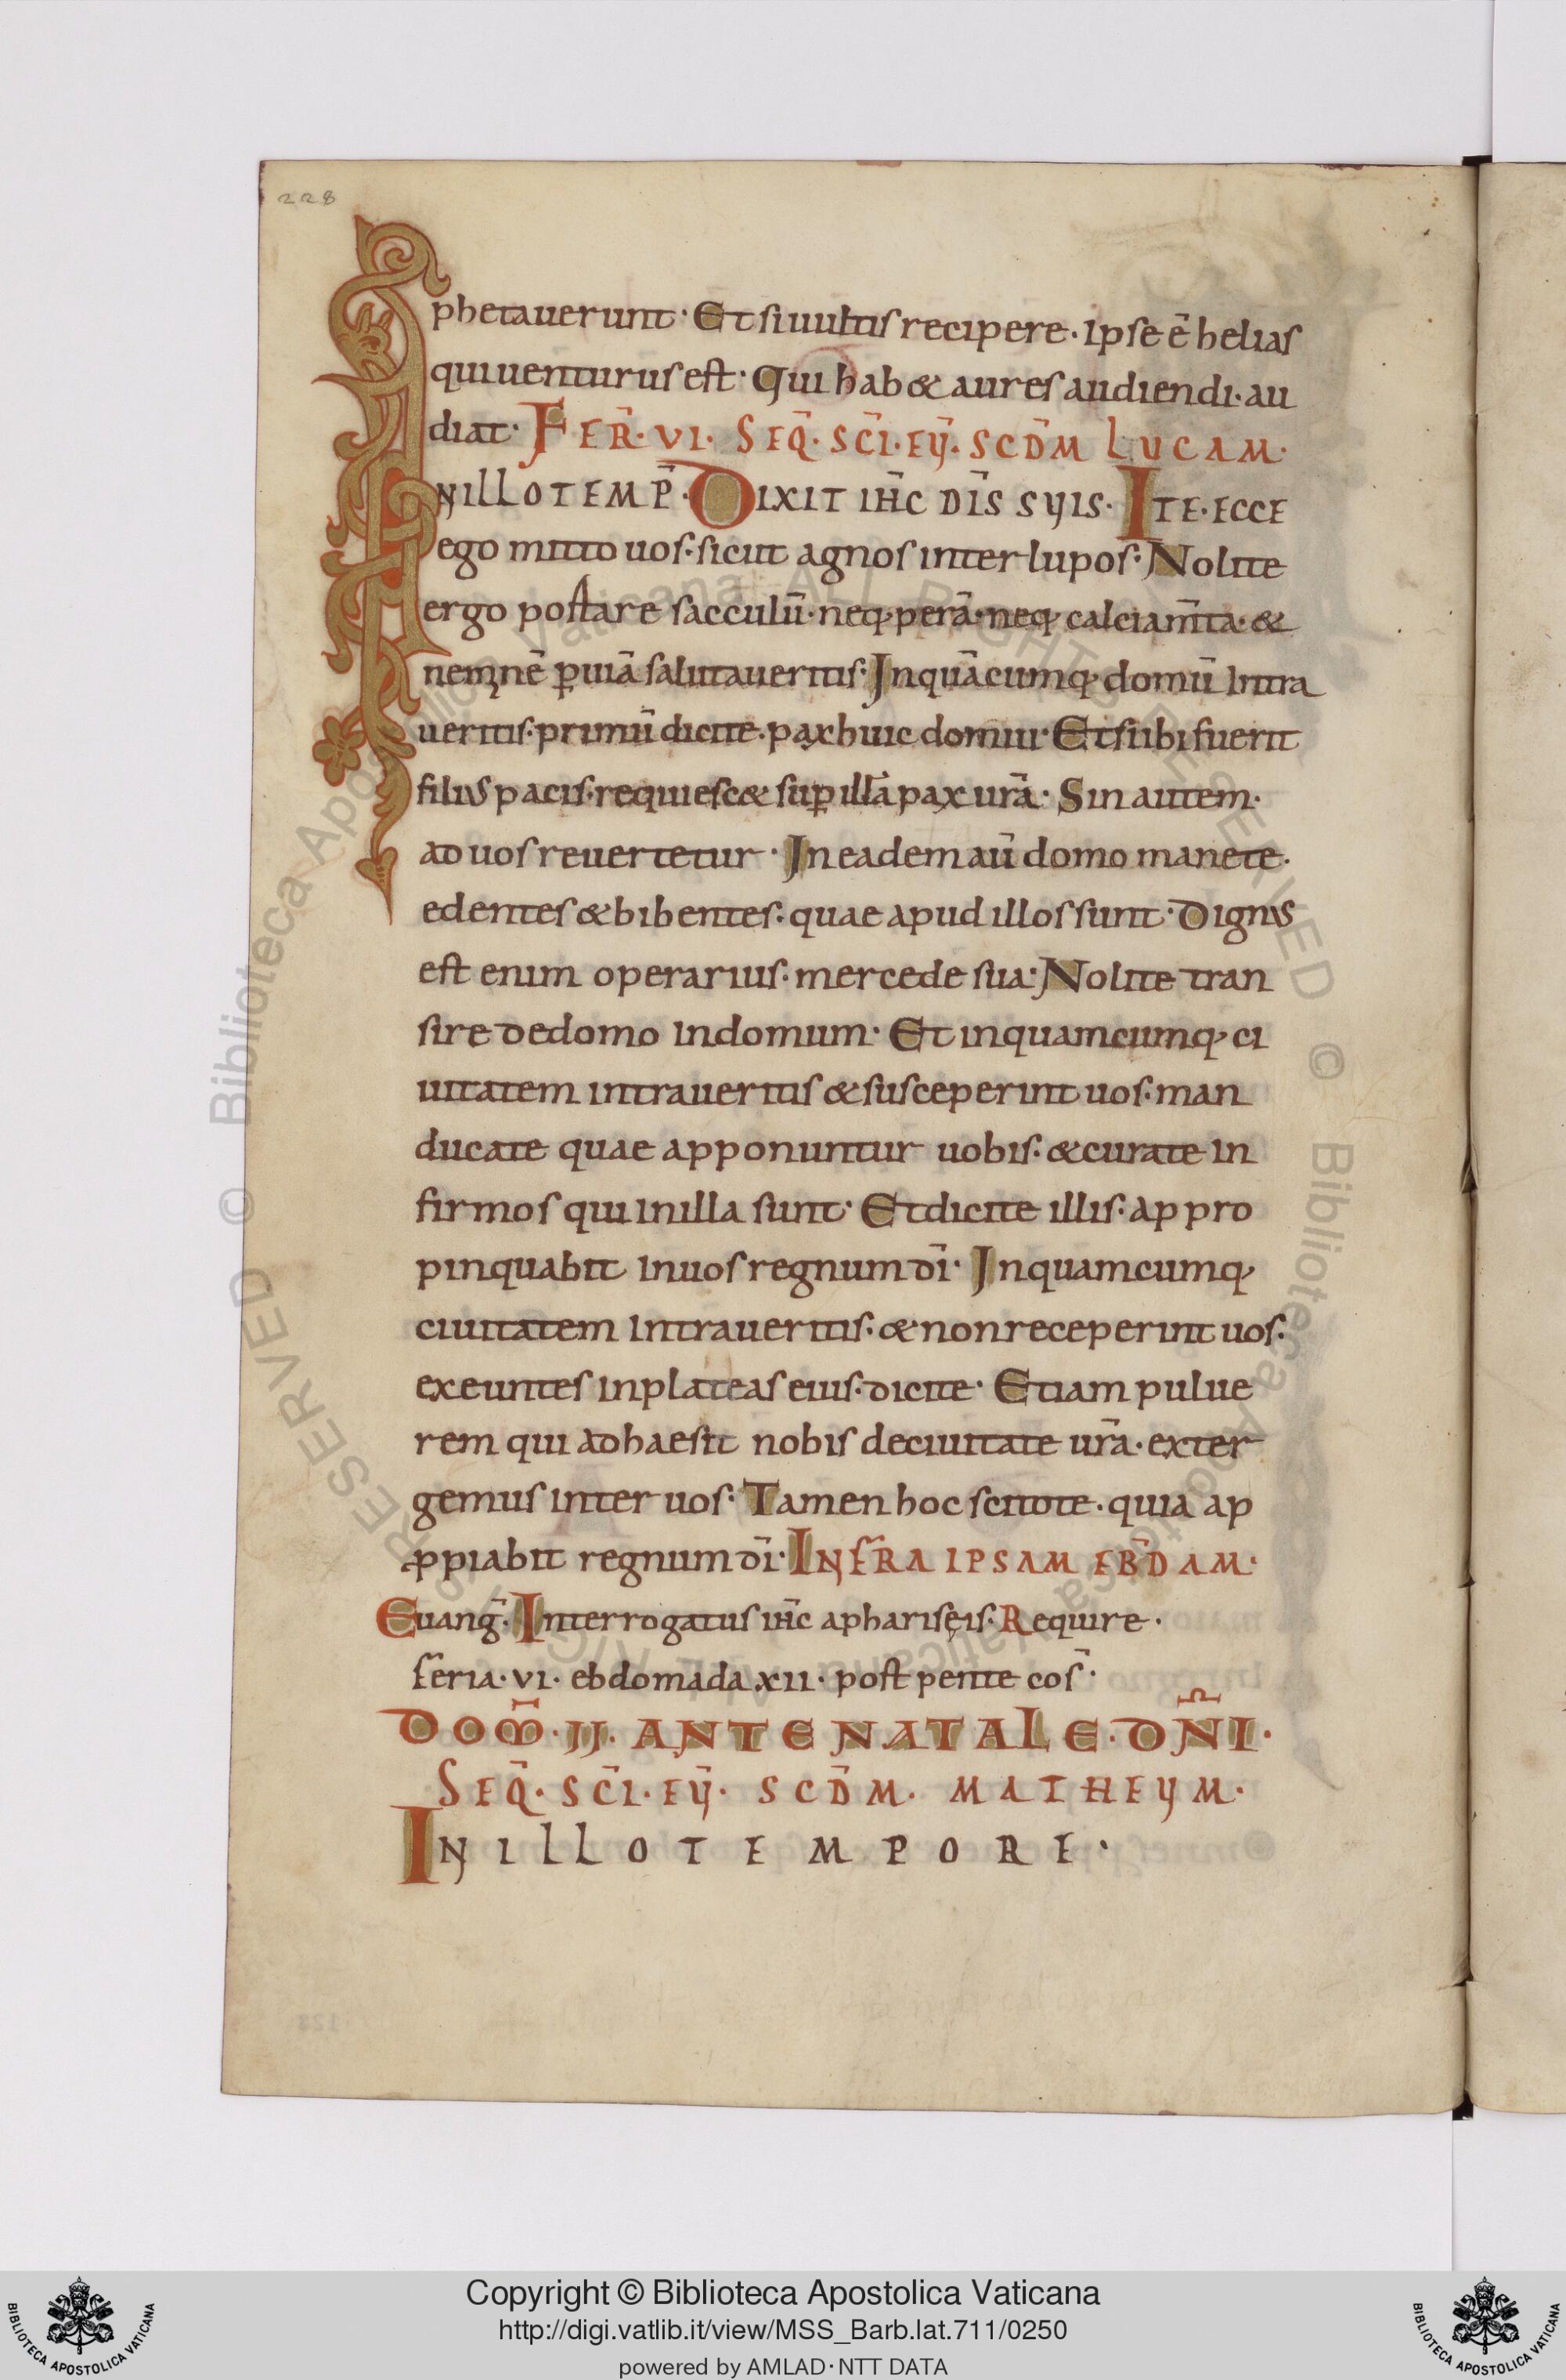 228
phetauerunt· Et si uultis recipere· ipse ē helias
qui uenturus est· Qui hab& aures audiendi· au
diat· FER̄· VI· SEQ̄· SC̄I· EỸ· SCD̄M LUCAM·
INILLO TEMP̄· DIXIT IH̄C DĪS SUIS· ITE· ECCE
ego mitto uos· sicut agnos inter lupos· Nolite
ergo portare sacculū· neq· perā· neq· calciam̄ta· &
neminē p̱ uiā salutaueritis· In quācumq· domū intra
ueritis· primū dicite· pax huic domui· Et si ibi fuerit
filius pacis· requiesc& sup̱ illā pax ur̄a· Sin autem·
ad uos reuertetur· In eadem aū domo manete·
edentes & bibentes· quae apud illos sunt· Dignus
est enim operarius· mercede sua· Nolite tran
sire de domo in domum· Et in quamcumq· ci
uitatem intraueritis & susceperint uos· man
ducate quae apponuntur uobis· & curate in
firmos qui in illa sunt· Et dicite illis· appro
pinquabit in uos regnum dī· In quamcumq·
ciuitatem intraueritis· & non receperint uos·
exeuntes in plateas eius· dicite· Etiam pulue
rem qui adhaesit nobis de ciuitate ur̄a· exter
gemus inter uos· Tamen hoc scitote· quia ap
ꝓpiabit regnum dī· INFR̄A IPSAM EBD̄AM·
Euanḡ· Interrogatus ih̄c a pharisęis· Require·
feria· VI· ebdomada XII· post pentecos̄·
DOM̄· II· ANTE NATALE· DN̄I·
SEQ̄· SC̄I· EỸ· SCD̄M· MATHEUM·
IN ILLO TEMPORE·
Copyright © Biblioteca Apostolica Vaticana
http://digi.vatlib.it/view/MSS_Barb.lat.711/0250
powered by AMLAD·NTT DATA
BIBLIOTECA APOSTOLICA VATICANA
BIBLIOTECA APOSTOLICA VATICANA